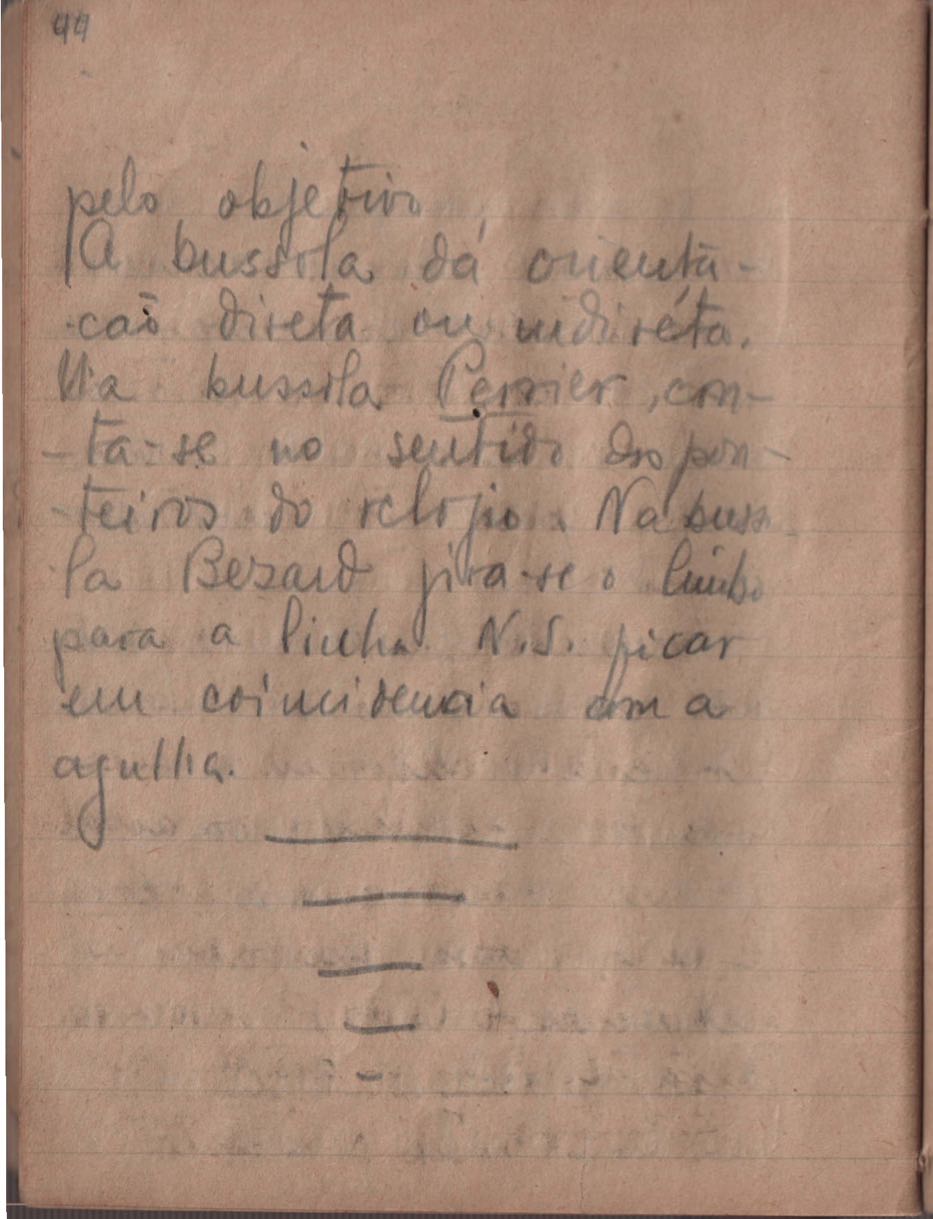 44
pelo objetivo
A bussola dá orienta-
-cão direta ou indiréta.
Na bussola Perrier, con-
-ta-se no sentido dos pon-
-teiros do relojio. Na busso-
la Bezard jira-se o limbo
para a linha N.S. ficar
em coincidencia com a
agulha.